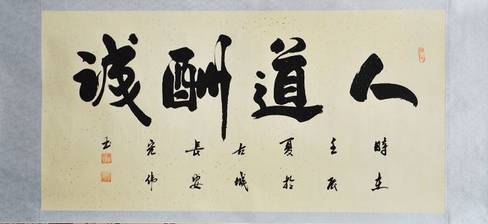 人道酬诚
時在
壬辰
夏於
古城
長安
宪伟